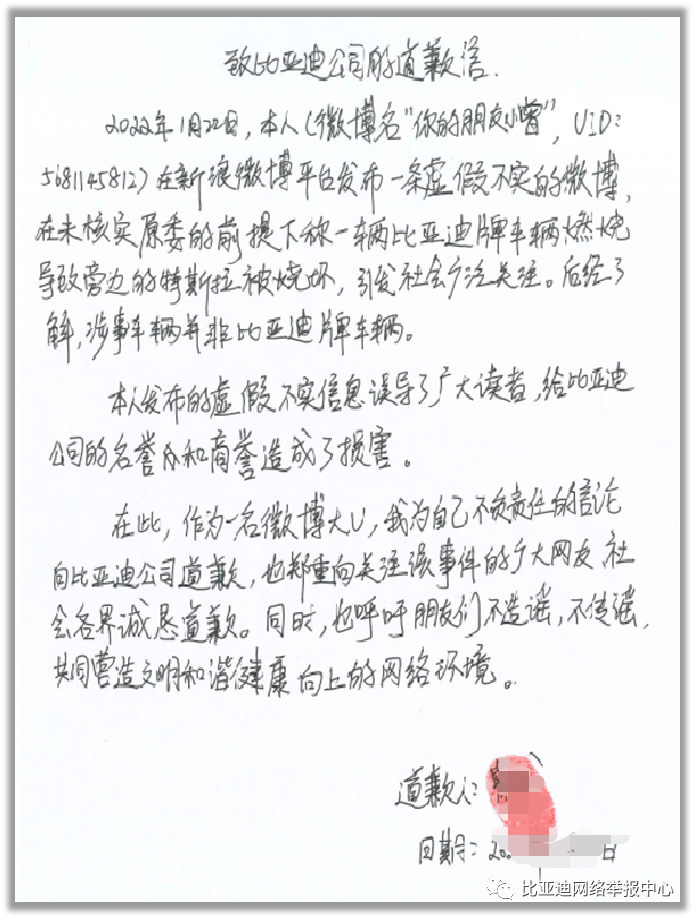 致比亚迪公司的道歉信.
2022年1月22日,本人(微博名"你的朋友小曾",UID:
5681145812)在新浪微博平台发布一条虚假不实的微博,
在未核实原委的前提下称一辆比亚迪牌车辆燃烧
导致旁边的特斯拉被烧坏,引发社会广泛关注。后经了
解,涉事车辆并非比亚迪牌车辆。
本人发布的虚假不实信息误导了广大读者,给比亚迪
公司的名誉和商誉造成了损害。
在此,作为一名微博大V,我为自己不负责任的言论
向比亚迪公司道歉,也郑重向关注该事件的广大网友、社
会各界诚恳道歉。同时,也呼吁朋友们不造谣,不传谣,
共同营造文明和谐健康向上的网络环境。
道歉人:
日期:20 日
比亚迪网络举报中心